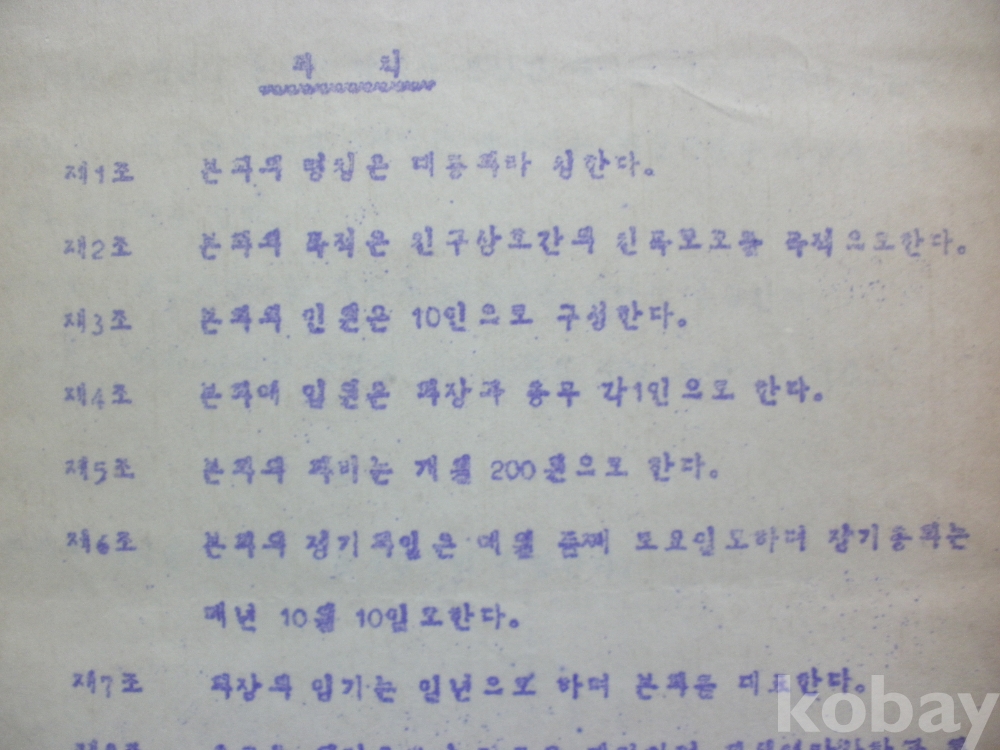 회 칙
제1조 본회의 명칭은 대동회라 칭한다.
제2조 본회의 목적은 친구상호간의 친목도모를 목적으로한다.
제3조 본회의 인원은 10인으로 구성한다.
제4조 본회에 임원은 회장과 총무 각1인으로 한다.
제5조 본회의 회비는 개월 200원으로 한다.
제6조 본회의 정기회일은 매월 둘째 토요일로하며 정기총회는
매년 10월 10일로한다.
제7조 회장의 임기는 일년으로 하며 본회를 대표한다.
kobay